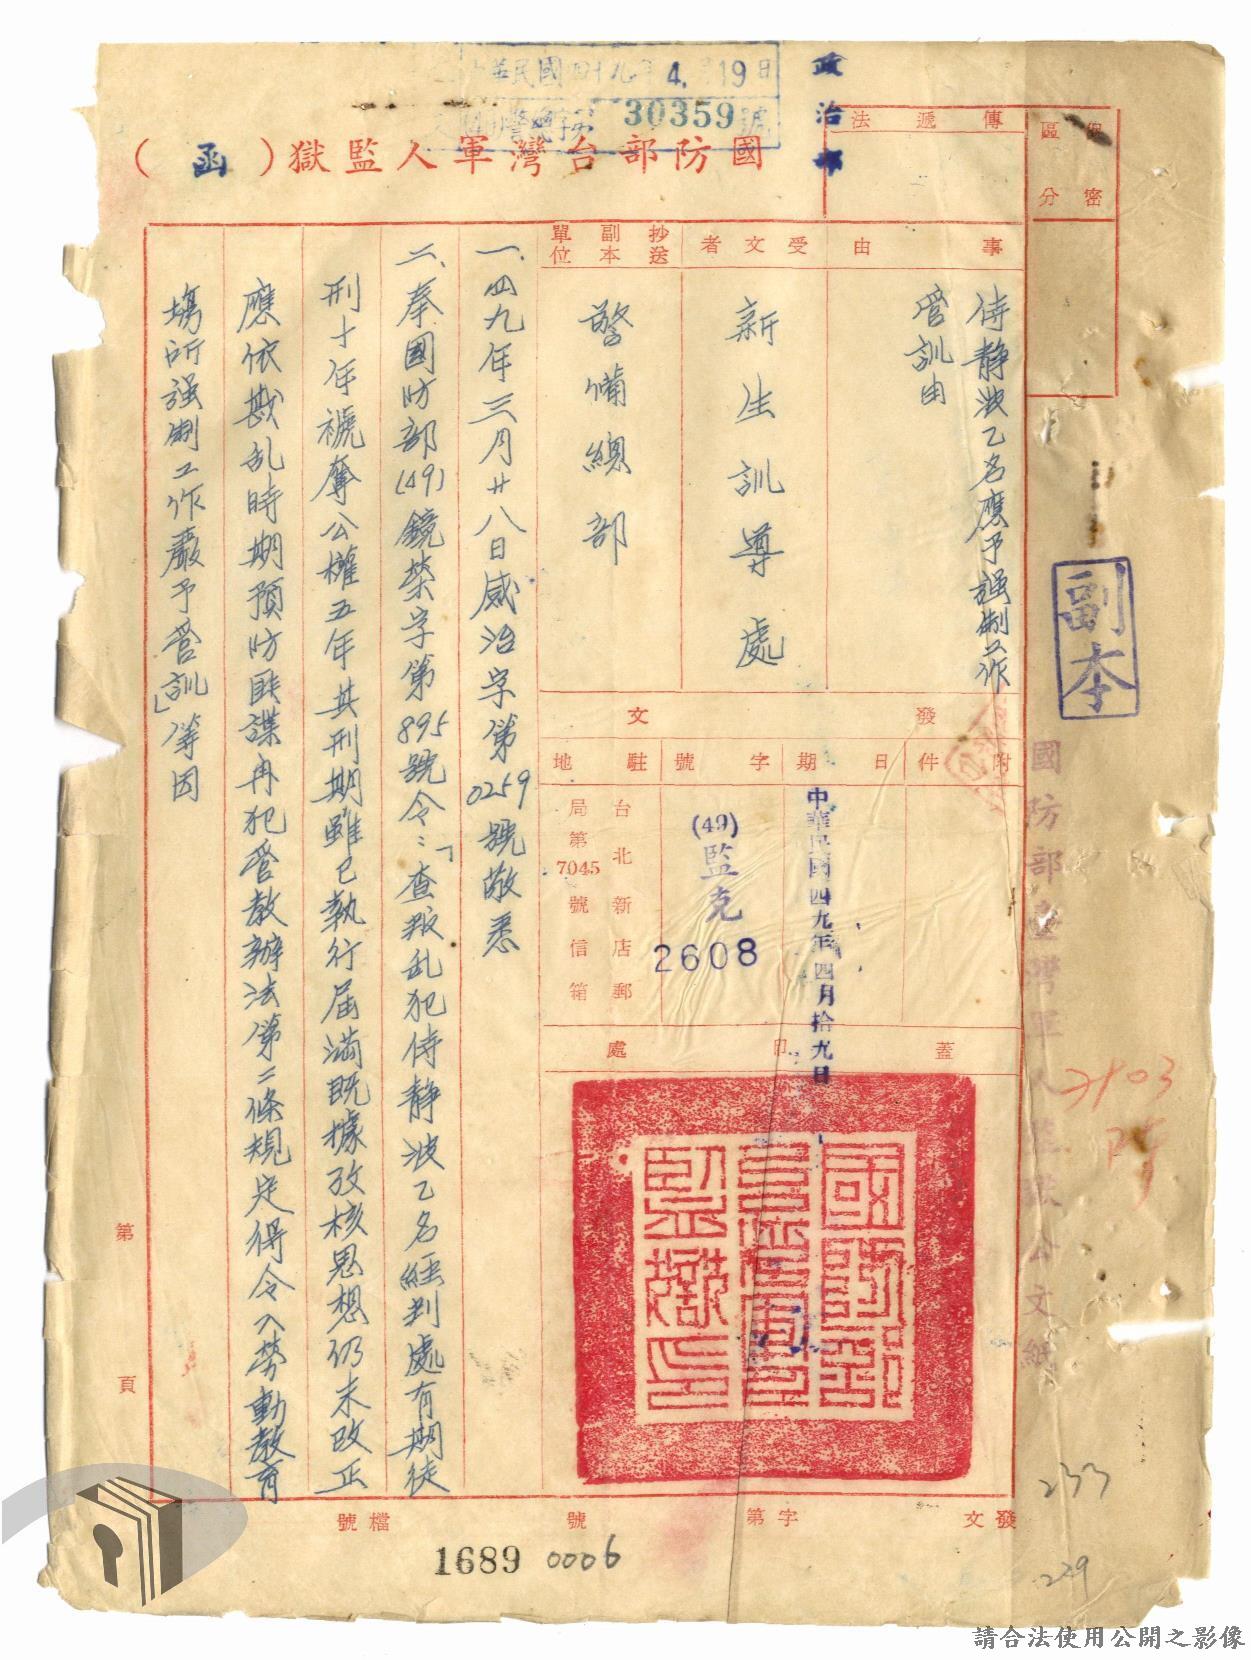 中華民國四十九年4月19日
30359號
政治部
國防部台灣軍人監獄(函)
保密
區分
傳遞法
事由
侍靜波乙名應予强制工作
管訓由
受文者
新生訓導處
抄送
副本
單位
警備總部
發文
附件
日期
中華民國四九年四月拾九日
字號
(49)監克
2608
駐地
台北新店郵
局第7045號信箱
蓋印處
國防部
臺灣軍人
監獄印
一、四九年三月廿八日威治字第0259號敬悉
二、奉國防部(49)鏡榮字第895號令:「查叛乱犯侍靜波乙名經判處有期徒
刑十年褫奪公權五年其刑期雖已執行屆滿既據攷核思想仍未改正
應依戡乱時期預防匪諜再犯管教辦法第二條規定得令入勞動教育
場所强制工作嚴予管訓」等因
第 頁
副本
國防部臺灣軍人監獄公文紙
233
229
發文 字第 號
檔號
1689 0006
請合法使用公開之影像